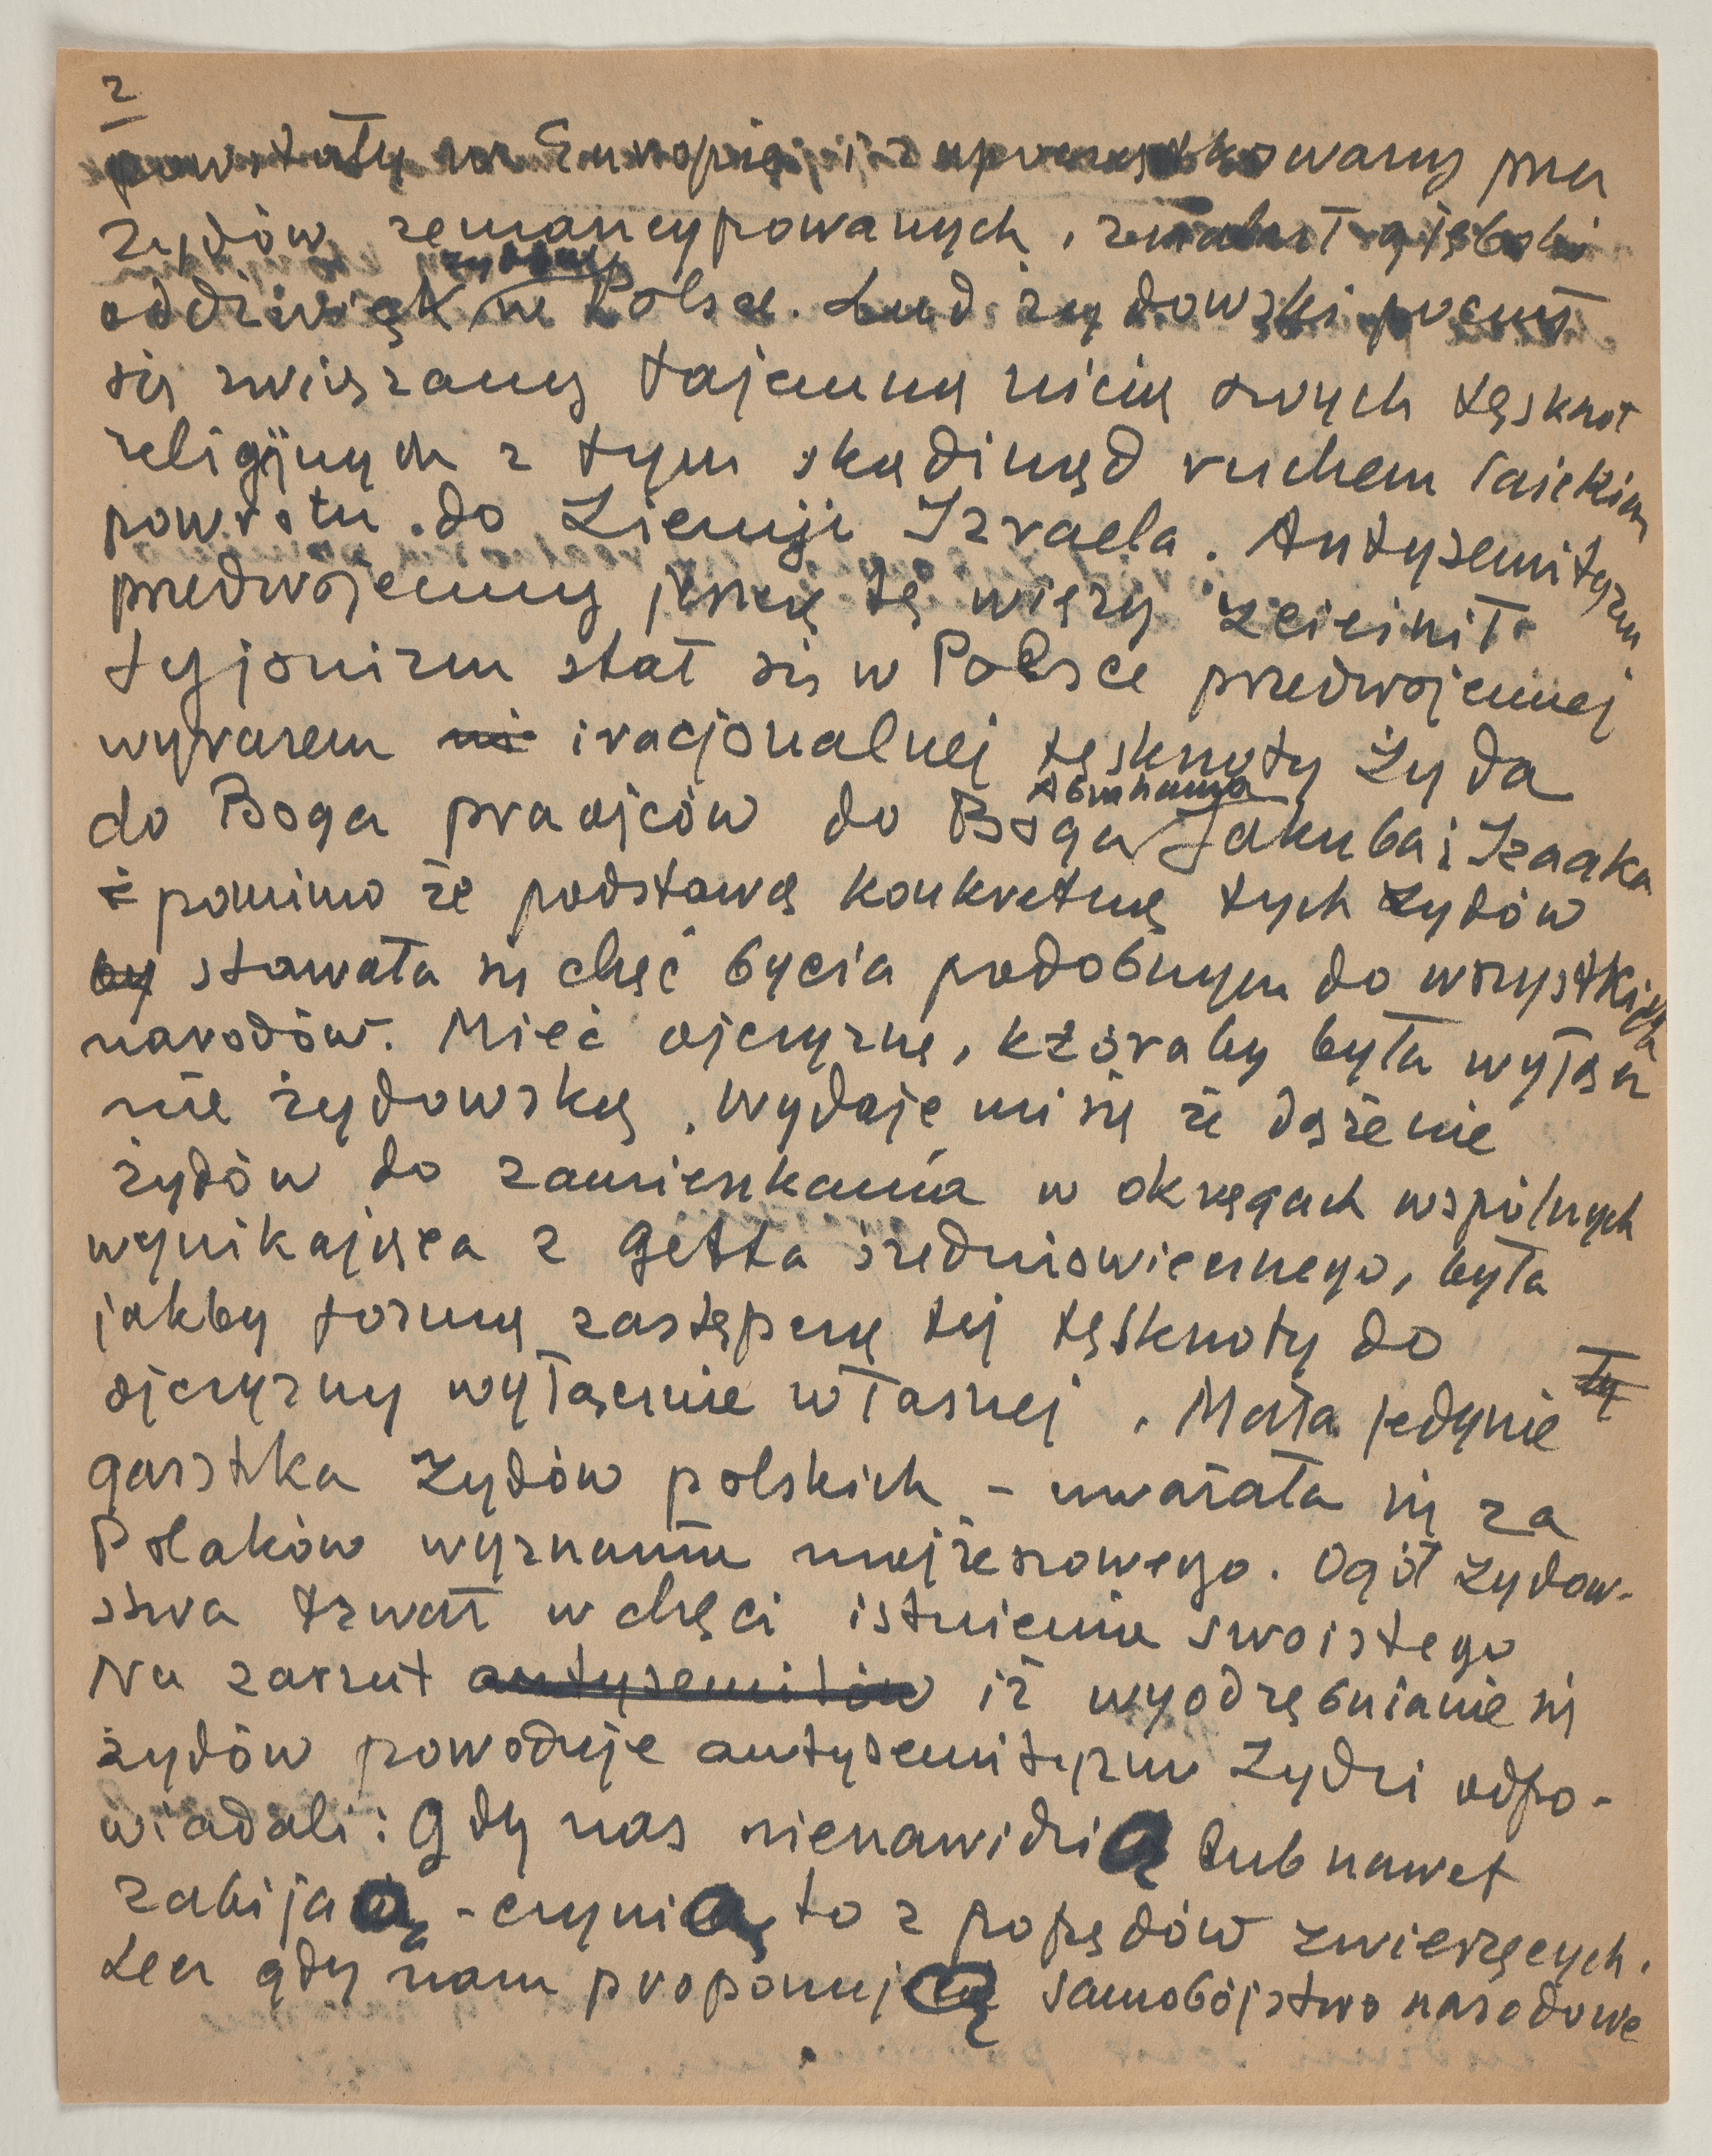 2
powstały w Europie, i zapoczątkowany przez
żydów zemancypowanych, znalazł głęboki
żydów
oddźwięk w Polsce. Lud żydowski poczuł
się związany tajemną nicią swych tęsknot
religijnych z tym skądinąd ruchem laickim
powrotu do Ziemji Izraela. Antysemityzm
przedwojenny jeszcze tę więzy zcieśnił.
Syjonizm stał się w Polsce przedwojennej
wyrazem iracjonalnej tęsknoty Żyda
Abrahama
do Boga praojców do Boga Jakuba i Izaaka
i pomimo że podstawą konkretną tych Żydów
by stawała się chęć bycia podobnym do wszystkich
narodów. Mieć ojczyznę, któraby była wyłącz
nie żydowską, wydaje mi się że dążenie
żydów do zamieszkania w okręgach wspólnych
wynikająca z getta średniowiecznego, była
jakby formą zastępczą tej tęsknoty do
ojczyzny wyłącznie własnej. Mała jedynie ty
garstka Żydów polskich – uważała się za
Polaków wyznania mojżeszowego. Ogół żydow-
stwa trwał w chęci istnienia swoistego
Na zarzut antysemitów iż wyodrębnianie się
żydów powoduje antysemityzm Żydzi odpo-
wiadali: Gdy nas nienawidzią lub nawet
zabijają – czynią to z popędów zwierzęcych.
Lecz gdy nam proponują samobójstwo narodowe